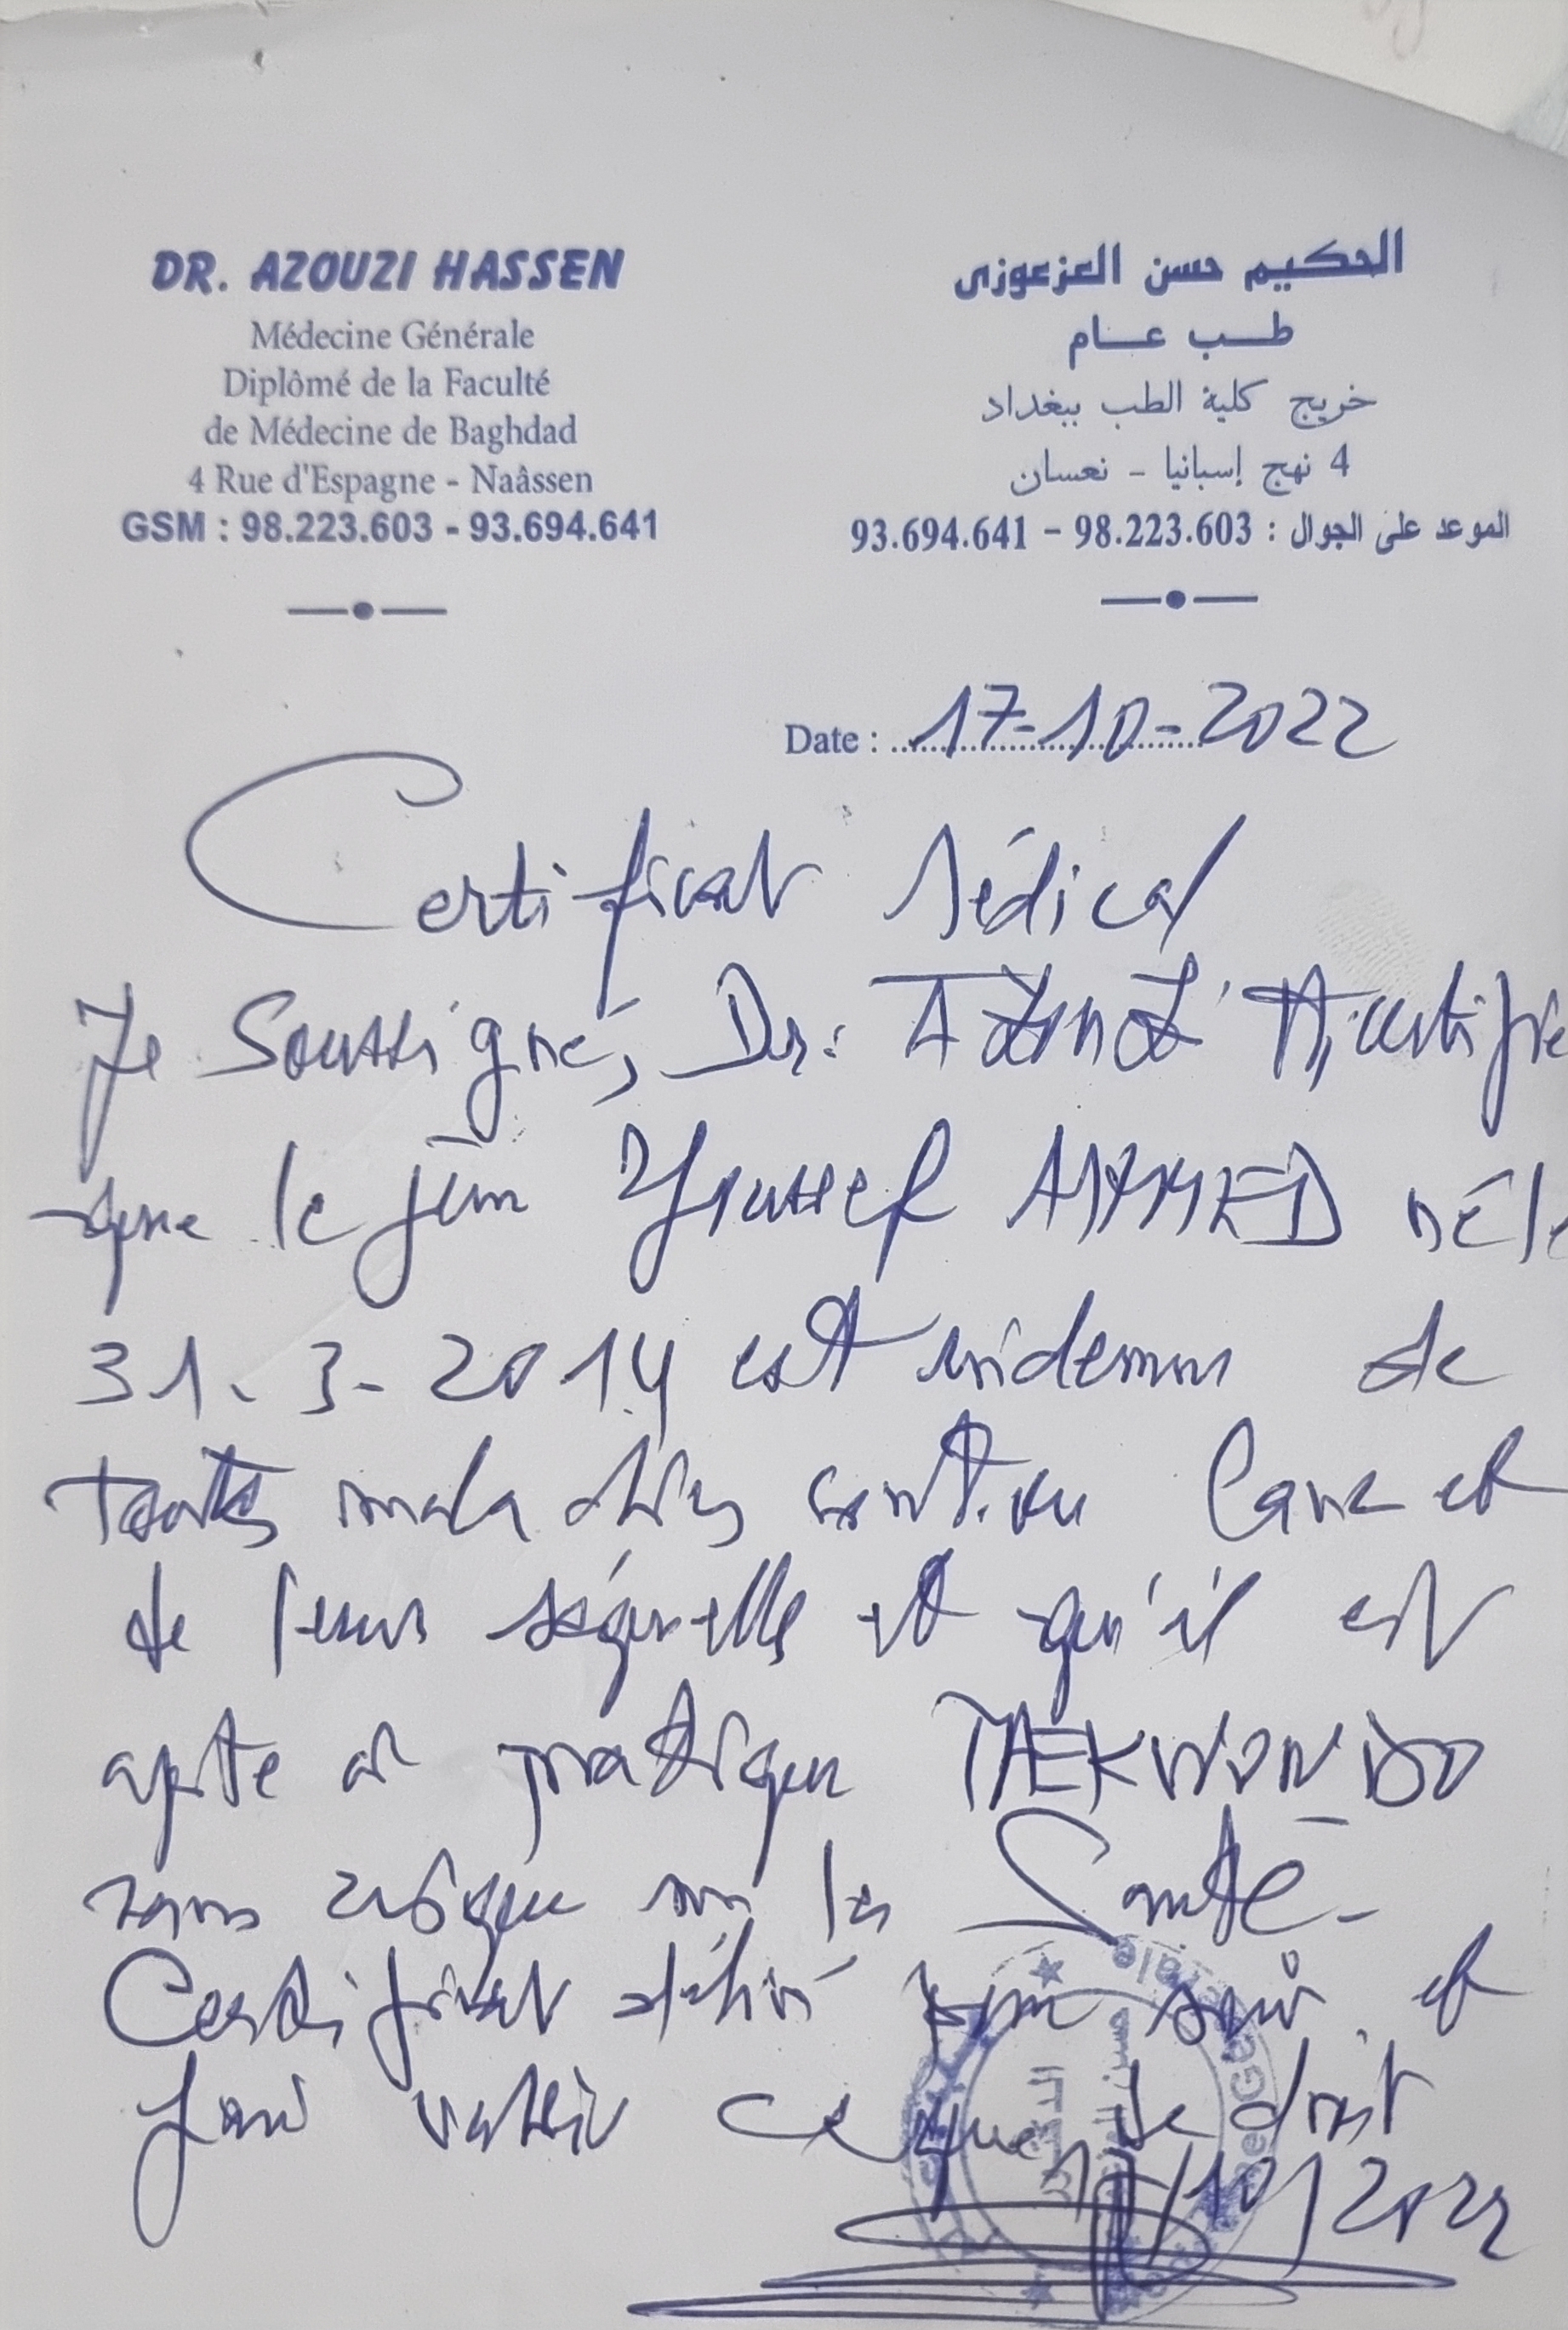 DR. AZOUZI HASSEN
Médecine Générale
Diplômé de la Faculté
de Médecine de Baghdad
4 Rue d'Espagne - Naâssen
GSM : 98.223.603 - 93.694.641
الحكيم حسن العزعوزي
طب عام
خريج كلية الطب ببغداد
4 نهج إسبانيا - نعسان
الموعد على الجوال : 98.223.603 - 93.694.641
Date : 17-10-2022
Certificat Médical
Je Soussigné, Dr: certifie
que le Youssef né le
31-3-2014 est indemne de
toutes maladies et
de leurs séquelle et qu'il est
apte à pratiquer TAEKWONDO
sans risque sur la Santé-
Certificat délivré pour et
valoir ce que de droit
17/10/2022